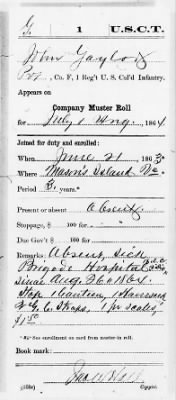 G | 1 | U.S.C.T.
John Taylor
Pvt, Co. F, 1 Reg't U. S. Col'd Infantry.
Appears on
Company Muster Roll
for July & Aug, 1864
Joined for duty and enrolled:
When June 21, 1863
Where Mason's Island Va
Period 3 years.*
Present or absent Absent
Stoppage, $ 100 for
Due Gov't $ 100 for
Remarks: Absent, sick
Brigade Hospital
since Aug. 26 1864
Stop 1 canteen 1 Haversack
1 pr scales
$1.50
*See enrollment on card from muster-in roll.
Book mark:
Copyist.